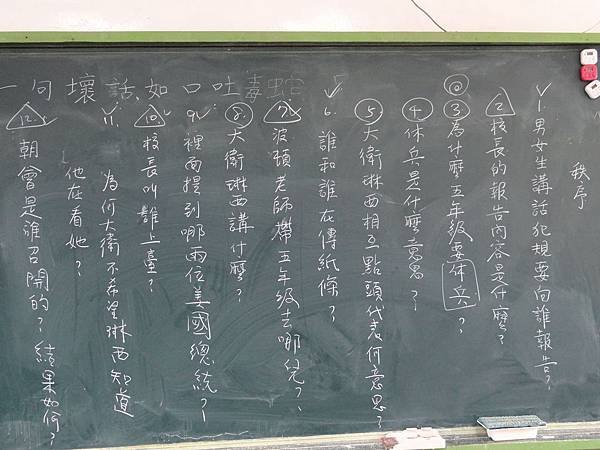 秩序
1. 男女生講話犯規要向誰報告?
2. 校長的報告內容是什麼?
◎
3 為什麼五年級要休兵?
4 休兵是什麼意思?
5 大衛琳西相互點頭代表何意思?
6. 誰和誰在傳紙條?
7. 波頓老師帶五年級去哪兒?
8. 大衛琳西講什麼?
9. 裡面提到哪兩位美國總統?
10. 校長叫誰上臺?
11. 為何大衛不希望琳西知道
他在看她?
12. 朝會是誰召開的?結果如何?
一句壞話,如口吐毒蛇